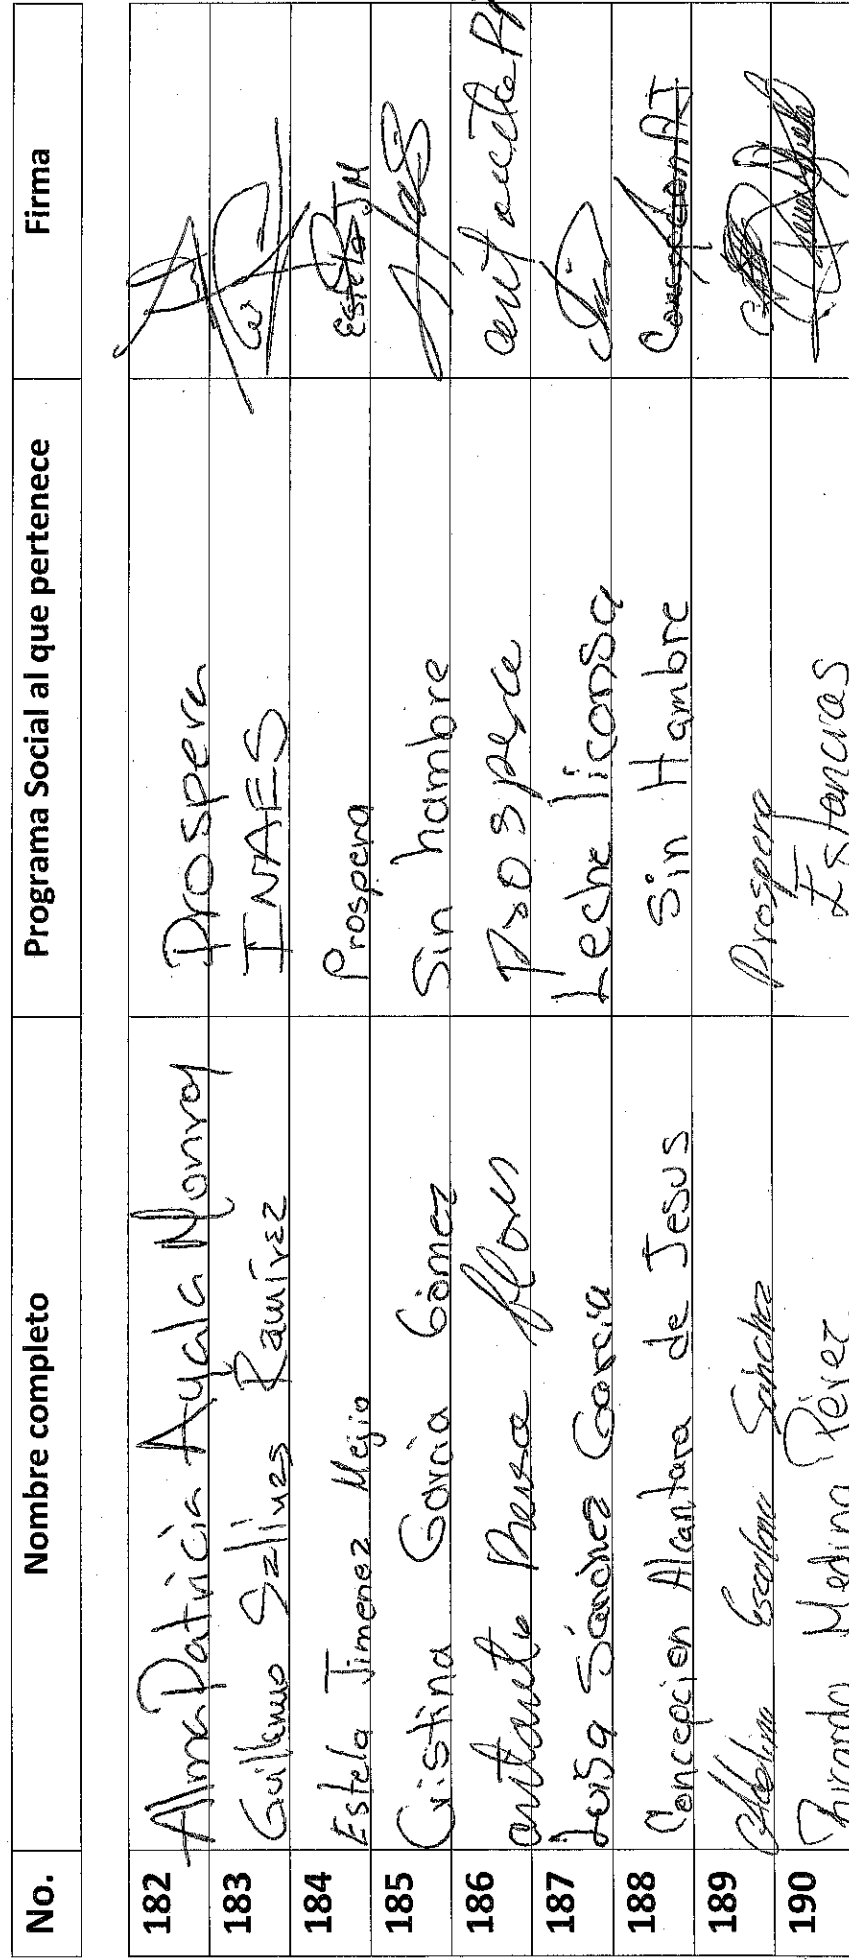 No. Nombre completo Programa Social al que pertenece Firma
182 Alma Patricia Ayala Monroy Prospera
183 Guillermo Salinas Ramírez INAES
184 Estela Jimenez Mejia Prospera Estela JM
185 Cristina García Gómez Sin hambre
186 flores Prospera
187 Luisa Sánchez García Leche liconsa
188 Concepcion Alcantara de Jesus Sin Hambre Concepcion AJ
189 Escalona Sánchez Prospera
190 Medina Pérez Estancias